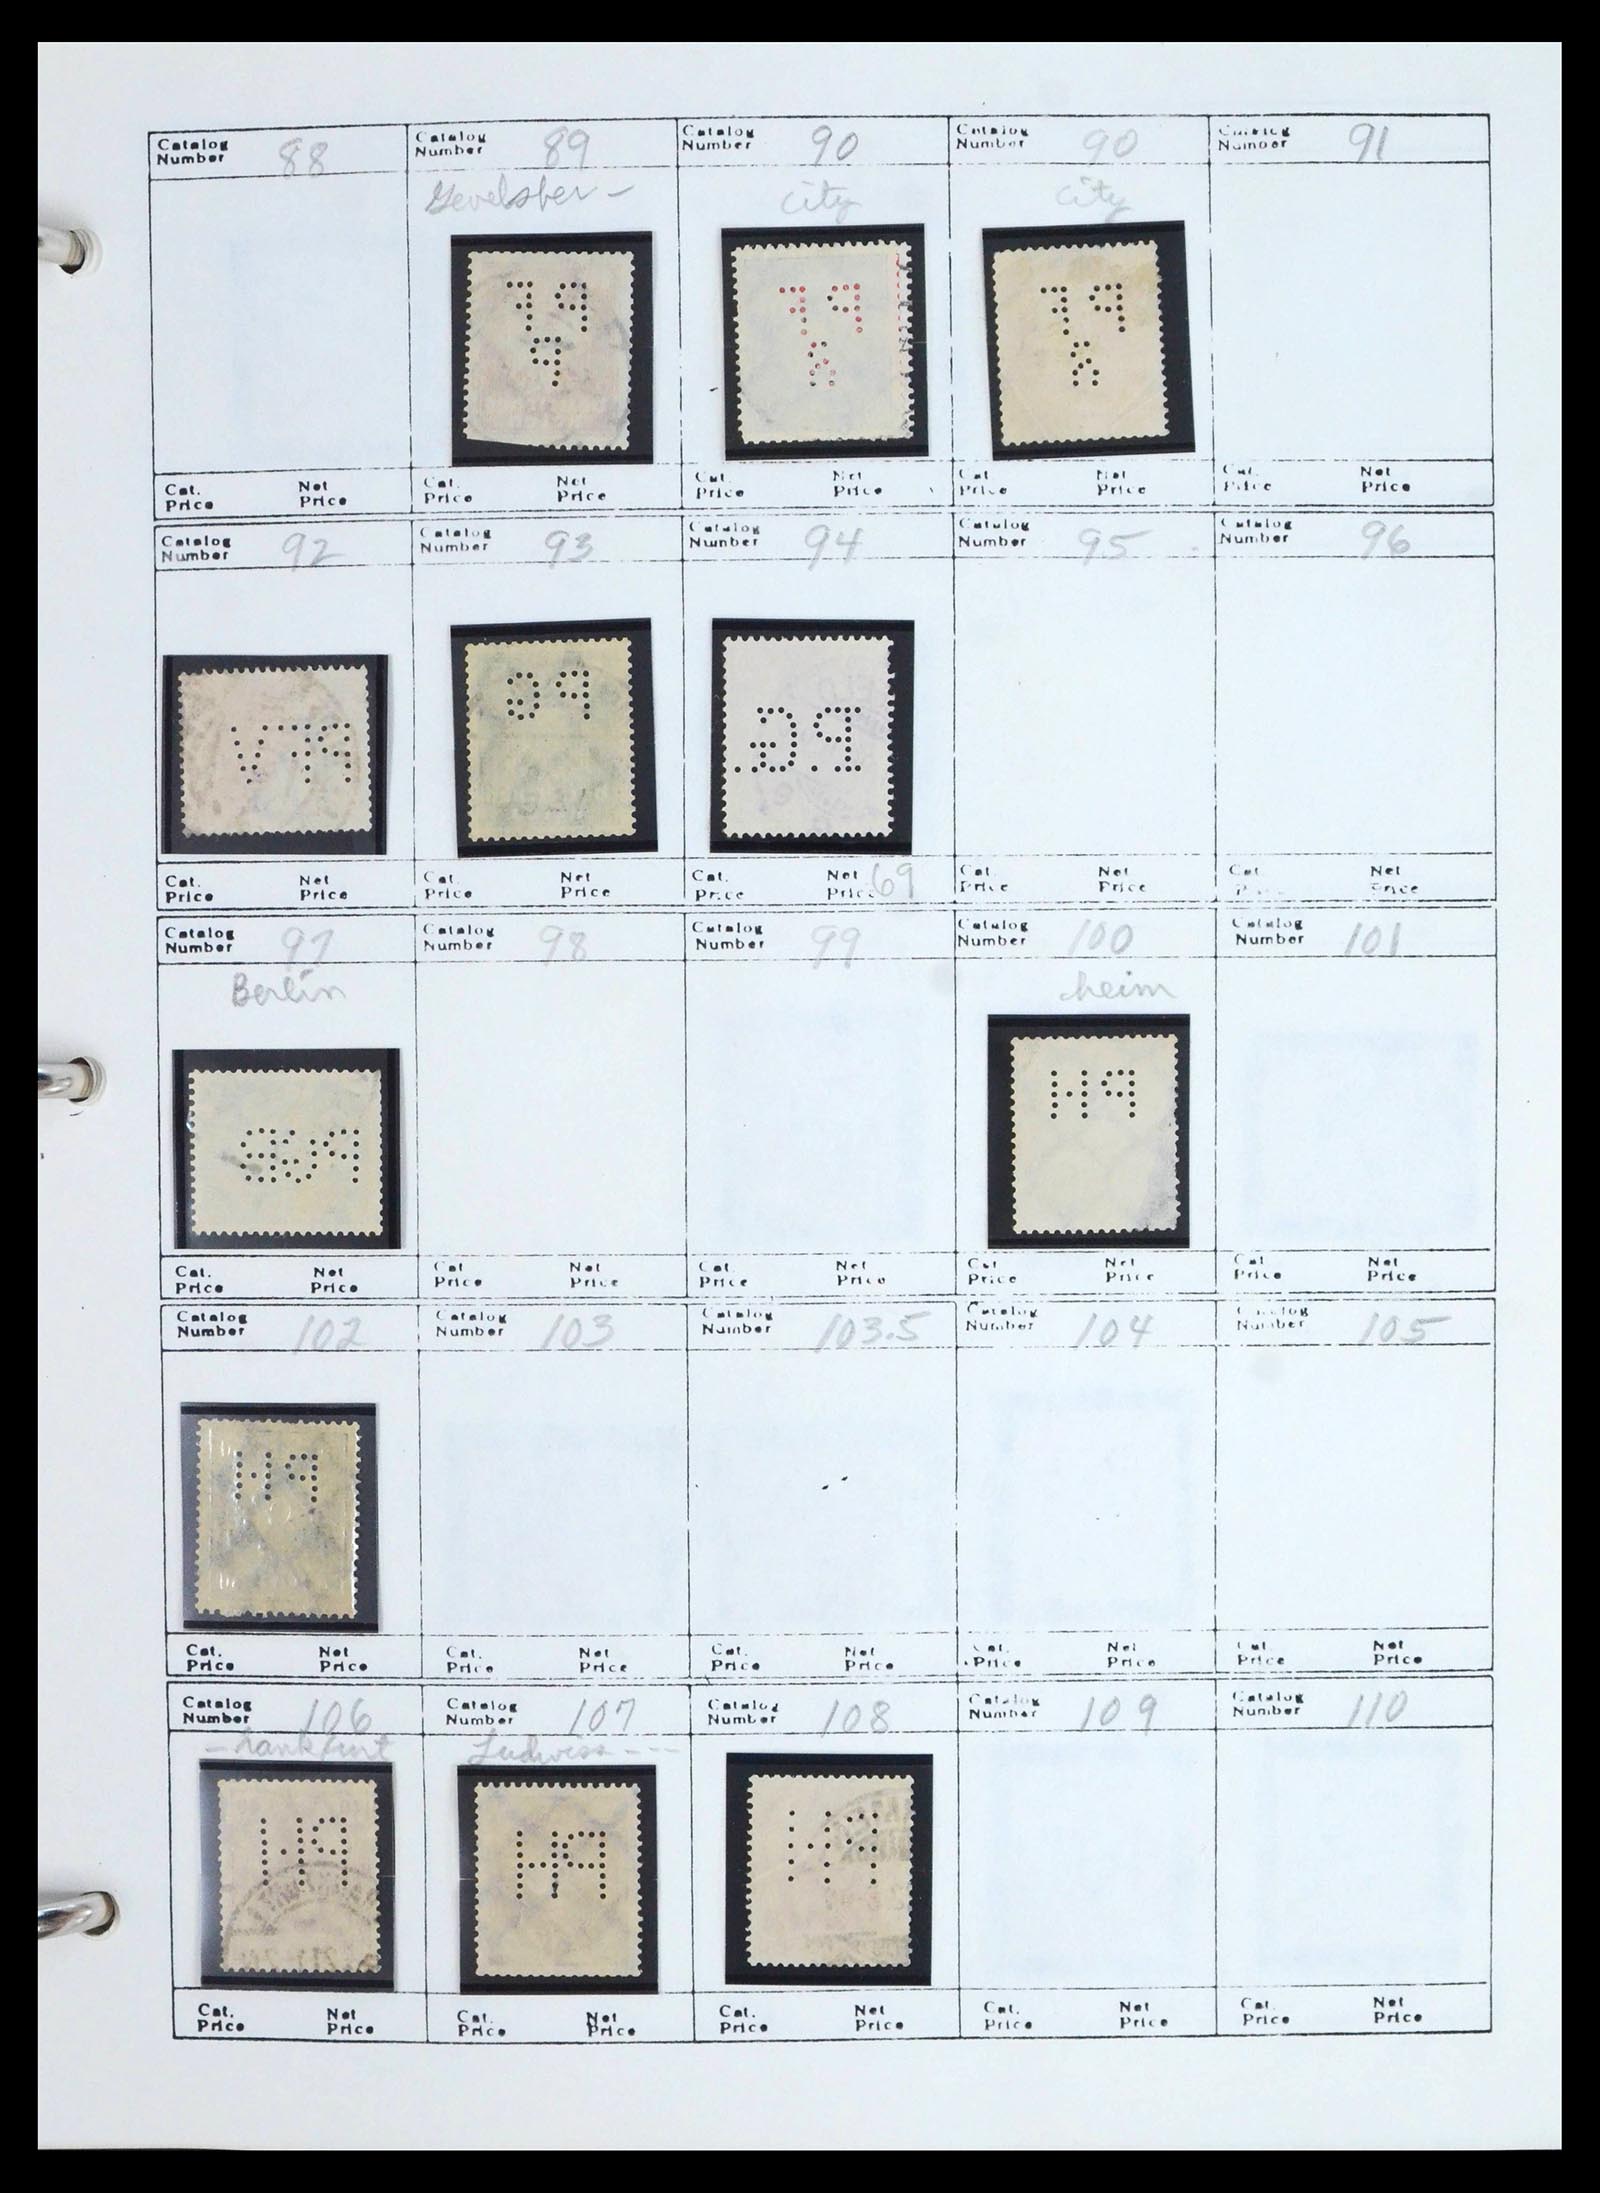 Catalog Number 88
Catalog Number 89
Catalog Number 90
Catalog Number 90
Catalog Number 91
Gevelsber -
City
City
Cat. Price Net Price
Cat. Price Net Price
Cat. Price Net Price
Cat. Price Net Price
Cat. Price Net Price
Catalog Number 92
Catalog Number 93
Catalog Number 94
Catalog Number 95
Catalog Number 96
Cat. Price Net Price
Cat. Price Net Price
Cat. Price Net Price 69
Cat. Price Net Price
Cat. Price Net Price
Catalog Number 97
Catalog Number 98
Catalog Number 99
Catalog Number 100
Catalog Number 101
Berlin
heim
Cat. Price Net Price
Cat. Price Net Price
Cat. Price Net Price
Cat. Price Net Price
Cat. Price Net Price
Catalog Number 102
Catalog Number 103
Catalog Number 103.5
Catalog Number 104
Catalog Number 105
Cat. Price Net Price
Cat. Price Net Price
Cat. Price Net Price
Cat. Price Net Price
Cat. Price Net Price
Catalog Number 106
Catalog Number 107
Catalog Number 108
Catalog Number 109
Catalog Number 110
Cat. Price Net Price
Cat. Price Net Price
Cat. Price Net Price
Cat. Price Net Price
Cat. Price Net Price